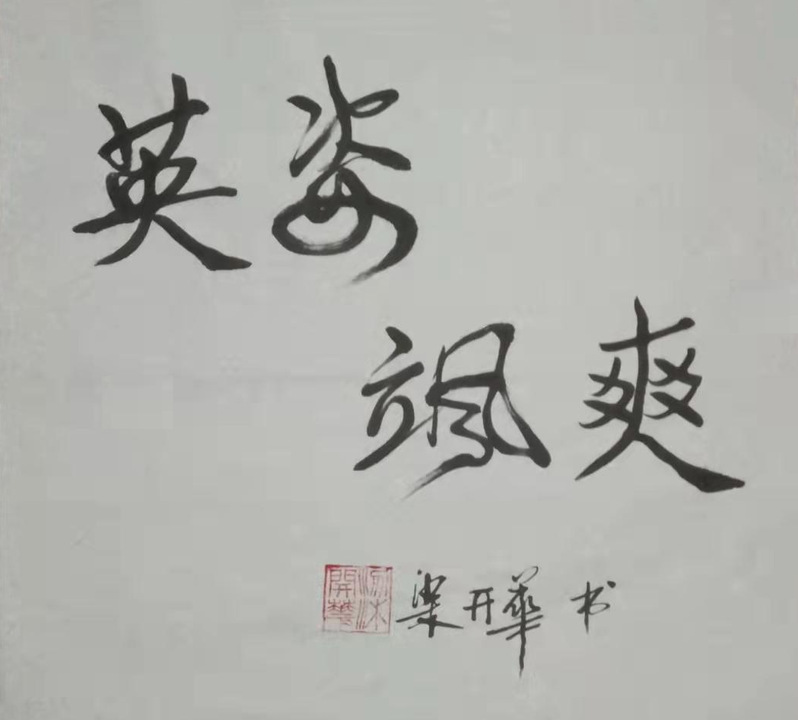 英姿
飒爽
開華 梁 梁开華书